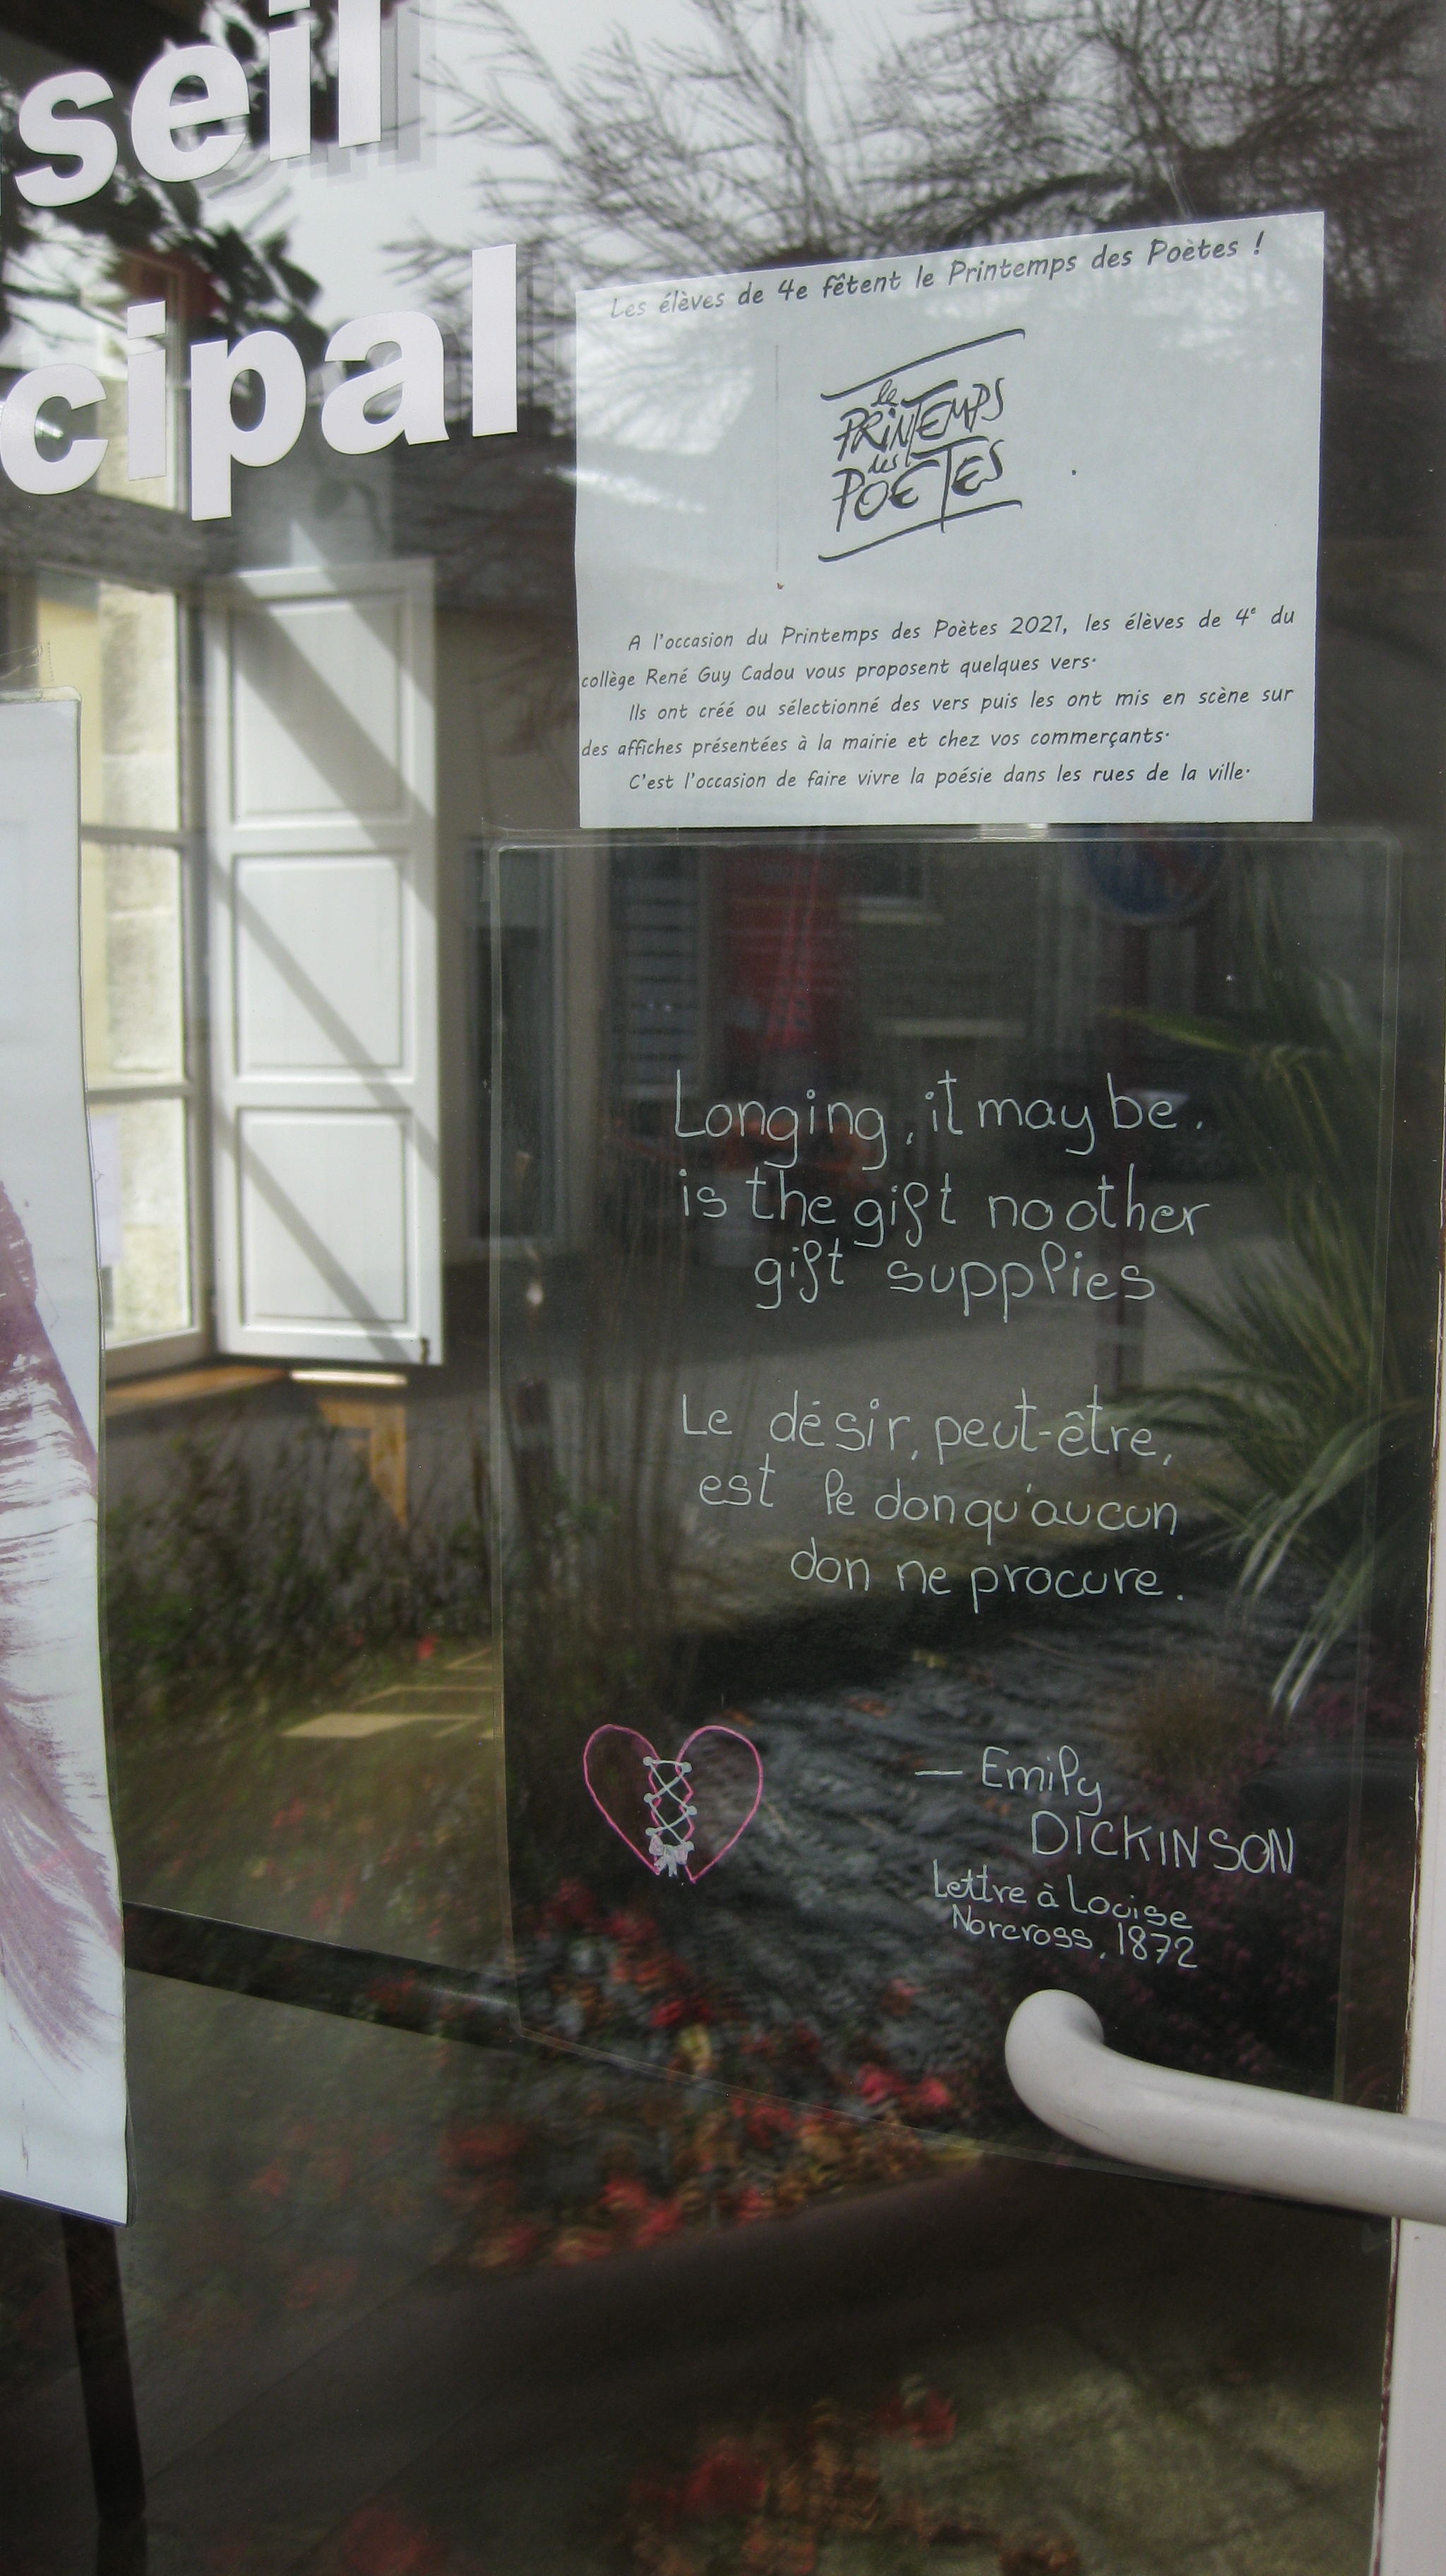 seil
cipal
Les élèves de 4e fêtent le Printemps des Poètes !
le
PRINTEMPS
des
POETES
A l'occasion du Printemps des Poètes 2021, les élèves de 4e du
collège René Guy Cadou vous proposent quelques vers.
Ils ont créé ou sélectionné des vers puis les ont mis en scène sur
des affiches présentées à la mairie et chez vos commerçants.
C'est l'occasion de faire vivre la poésie dans les rues de la ville.
Longing, it may be.
is the gift no other
gift supplies
Le désir, peut-être,
est le don qu'aucun
don ne procure.
— Emily
DICKINSON
Lettre à Louise
Norcross, 1872